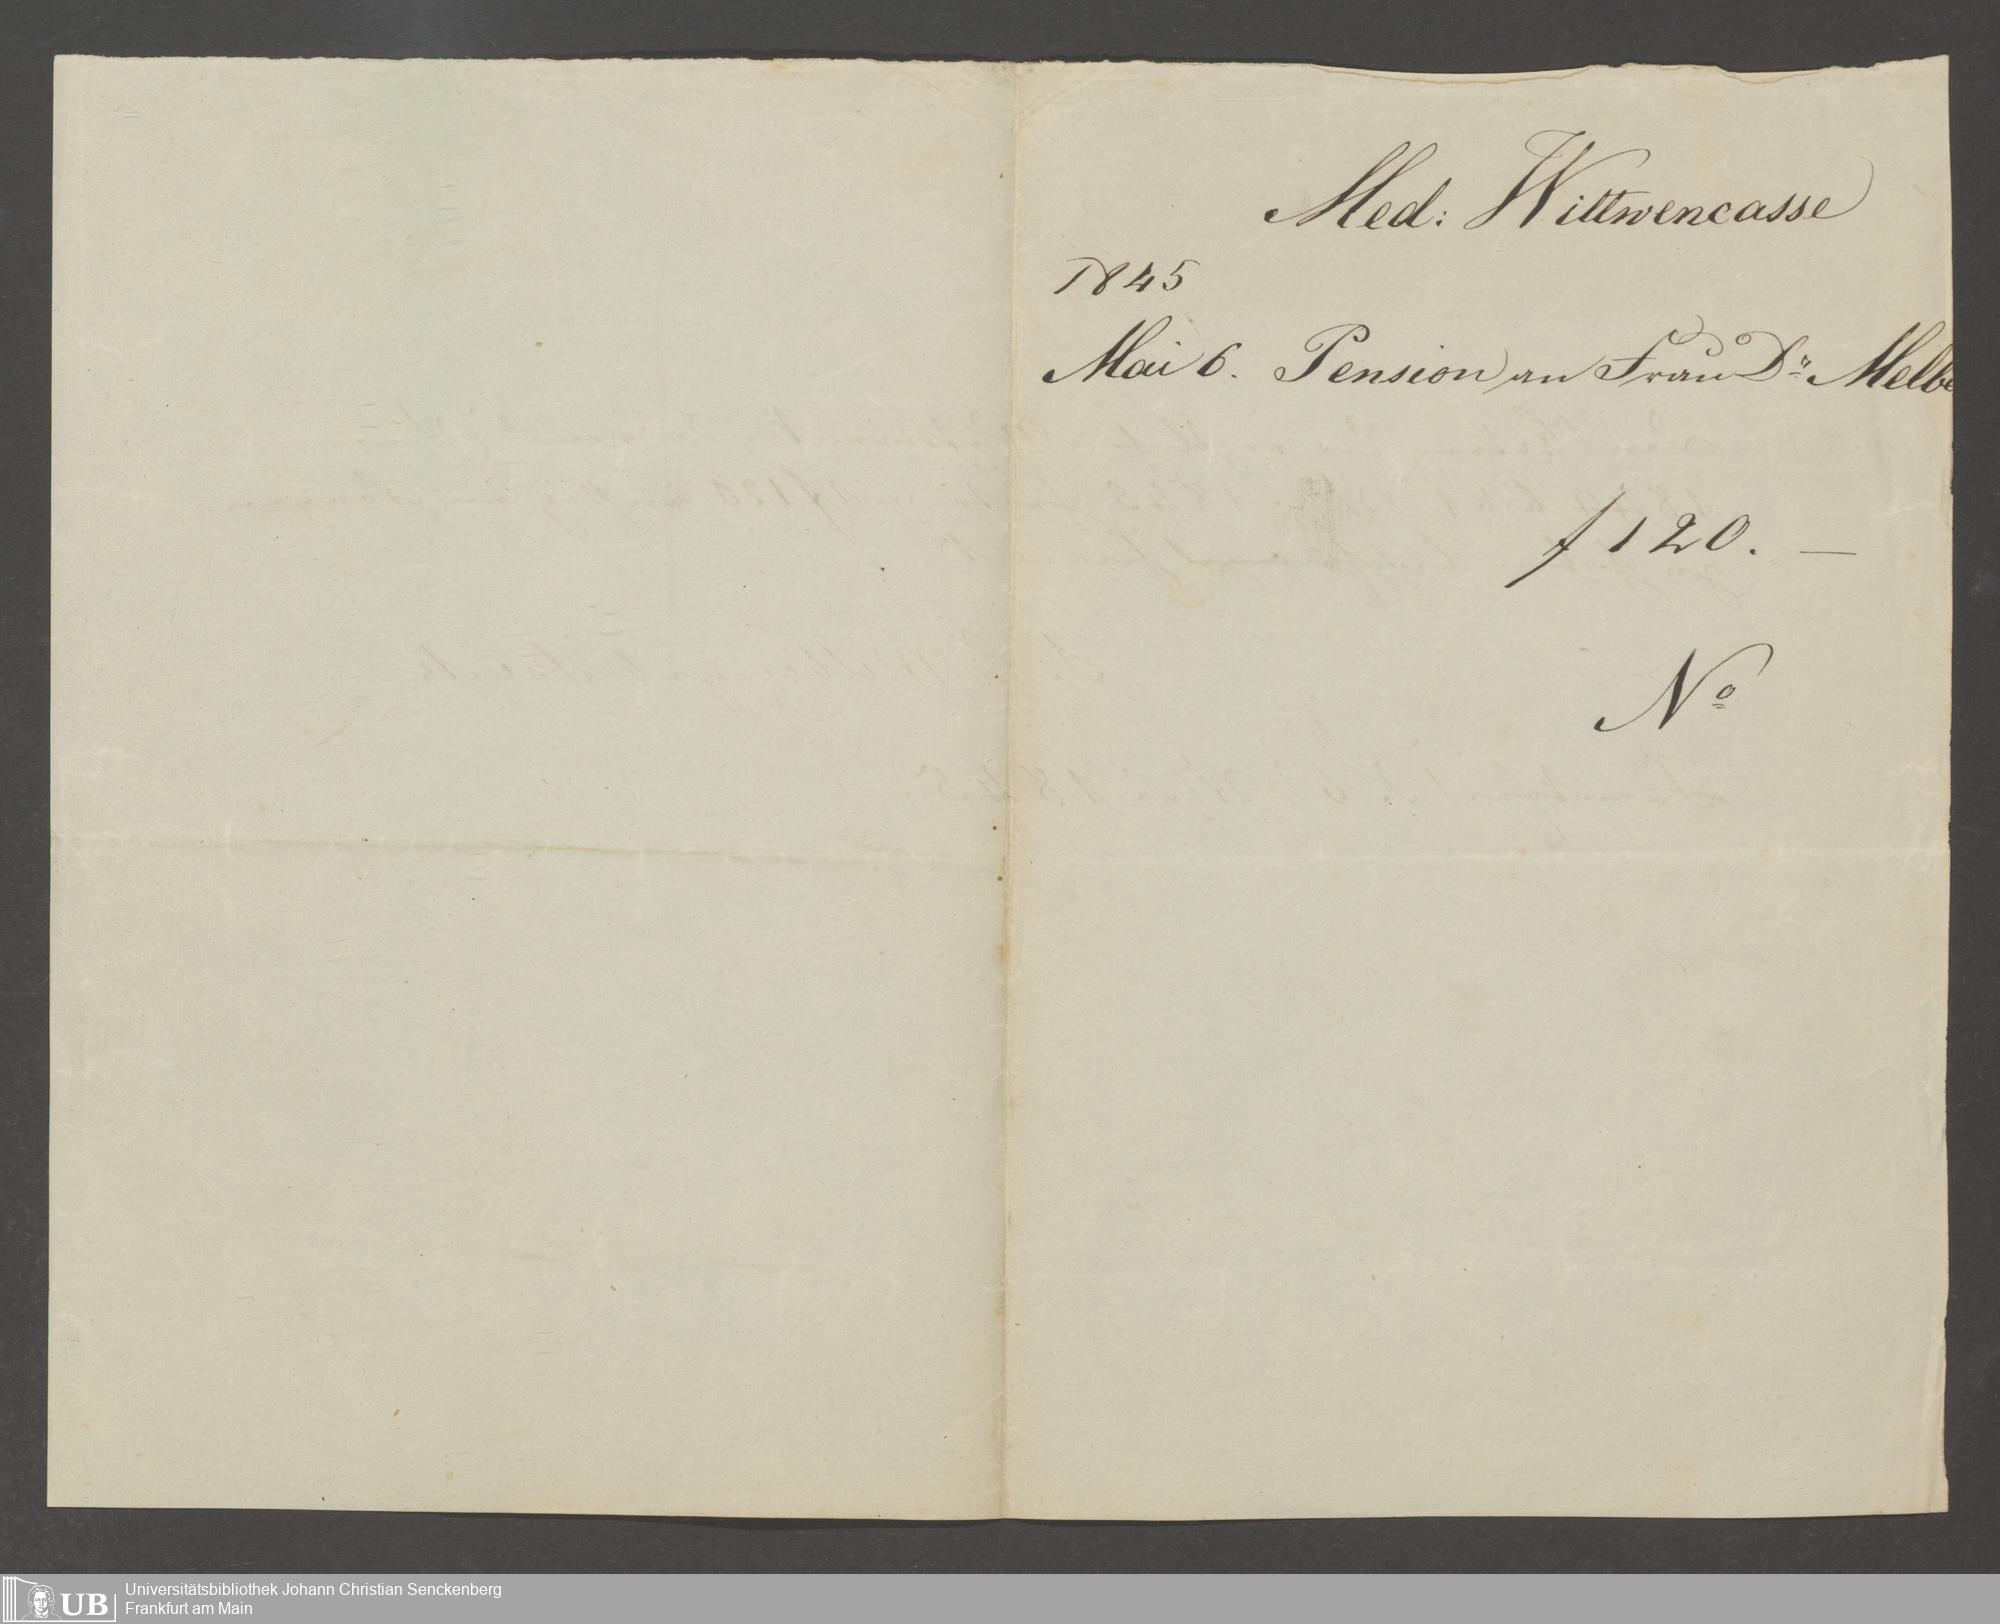 Med: Wittwencasse
1845
Mai 6. Pension an Frau Dr Melbe
f 120. —
No
Universitätsbibliothek Johann Christian Senckenberg
Frankfurt am Main
UB